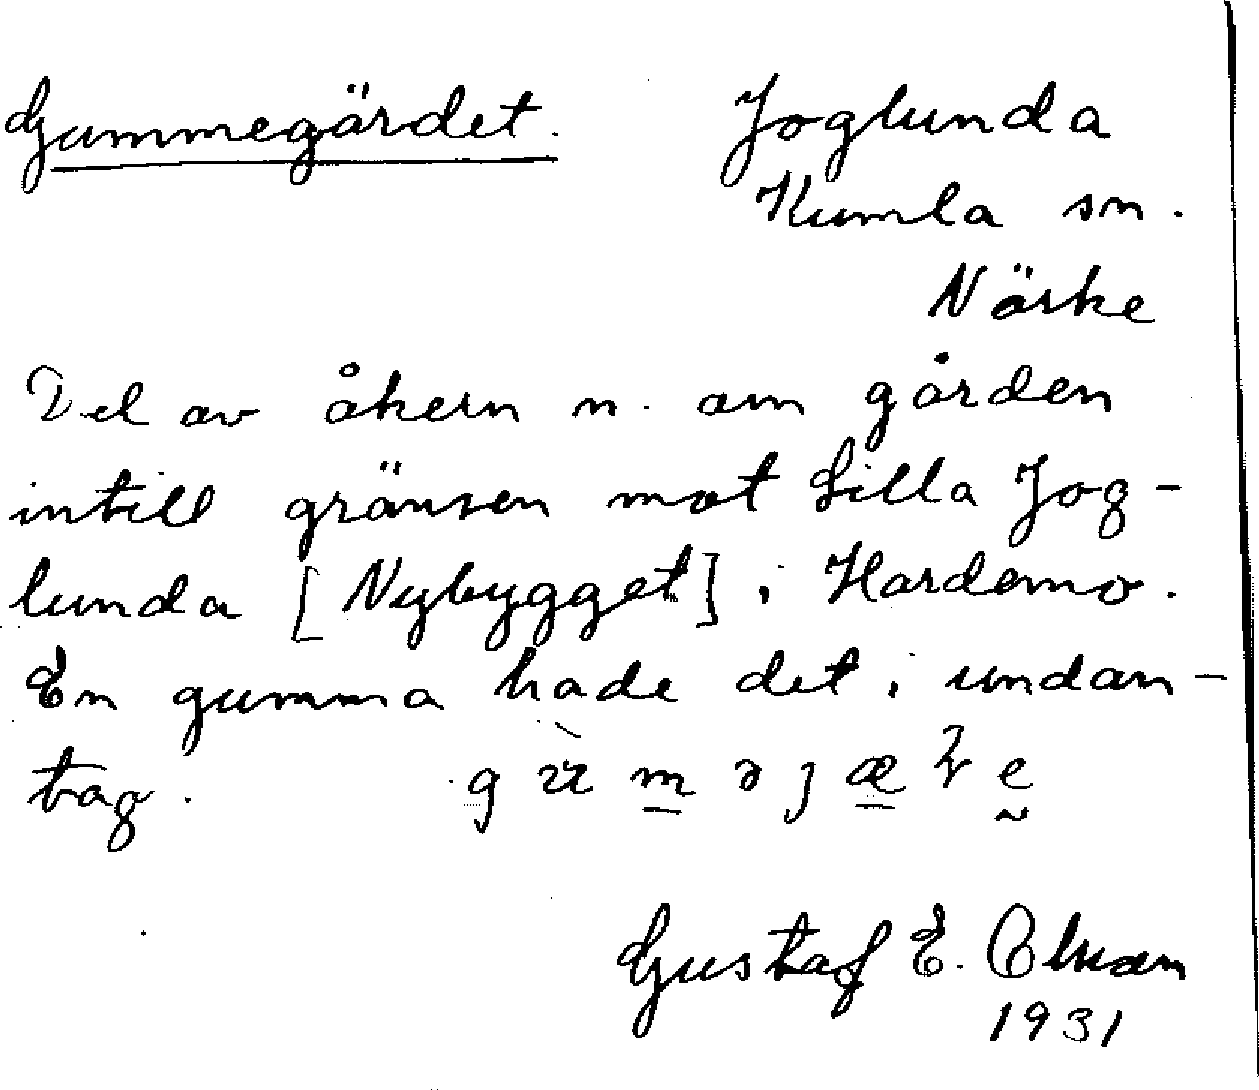 Gummegärdet.
Joglunda
Kumla sn.
Närke
Del av åkern n. om gården
intill gränsen mot Lilla Jog-
lunda [Nybygget] i Hardemo.
En gumma hade det i undan-
tag.
Gustaf E.
1931